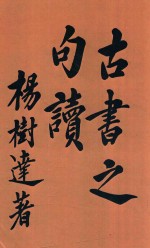 古書之
句讀
楊樹達著